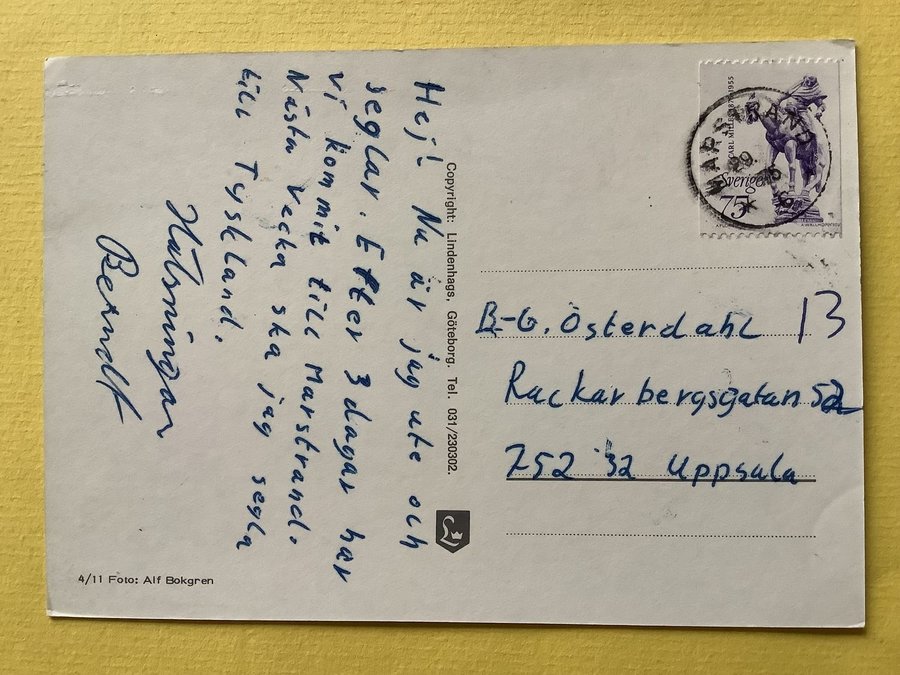 Hej! Nu är jag ute och
seglar. Efter 3 dagar har
vi kommit till Marstrand.
Nästa vecka ska jag segla
till Tyskland.
Hälsningar
Berndt
Copyright: Lindenhags, Göteborg. Tel. 031/230302.
4/11 Foto: Alf Bokgren
MARSTRAND
Sverige
75
B-G. Österdahl 13
Rackarbergsgatan 52
752 32 Uppsala